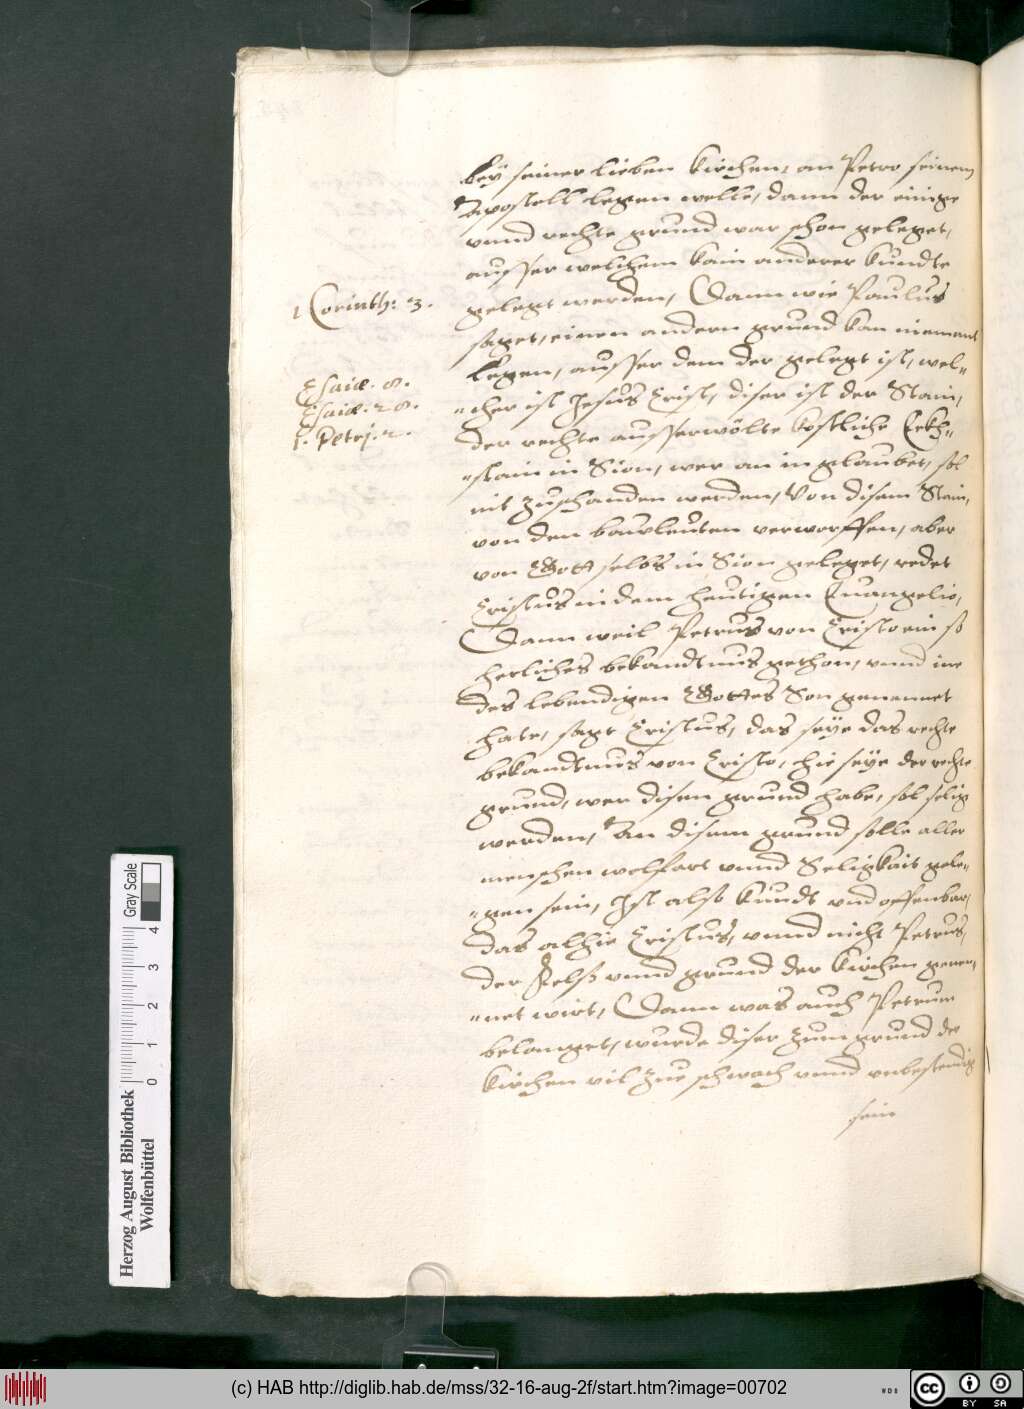 bey seiner lieben kirchen, an Petro seinem
Apostell legen welle, dann der einige
vnnd rechte grund war schon geleget,
ausser welchem kain anderer kundte
gelegt werden, Dann wie Paulus
saget, einen andern grund kan niemant
legen, ausser dem der gelegt ist, wel-
-cher ist Jesus Crist, diser ist der Stain,
der rechte ausserwölte kostliche Eckh-
-stain in Sion, wer an in glaubet, sol
nit zuschanden werden, Von disem Stain,
von den bauleuten verworffen, aber
von Gott selbs in Sion geleget, redet
Cristus in dem heutigen Euangelio,
Dann weil Petrus von Cristo ein so
herliches bekandtnus gethon, vnnd ine
des lebendigen Gottes Son genennet
hate, sagt Cristus, das seye das rechte
bekandtnus von Cristo, hie seye der rechte
grund, wer disen grund habe, sol selig
werden, An disem grund solle aller
menschen wolfart vnnd Seligkait gele-
-gen sein, Ist also kundt vnd offenbar,
das alhie Cristus, vnnd nicht Petrus,
der Felss vnnd grund der kirchen genen-
-net wirt, Dann was auch Petrum
belanget, wurde diser zum grund der
kirchen vil zue schwach vnnd vnbestendig
sein
1 Corinth: 3.
Esaiæ. 8.
Esaiæ. 28.
1. Petri. 2.
Herzog August Bibliothek
Wolfenbüttel
0 1 2 3 4
Gray Scale
(c) HAB http://diglib.hab.de/mss/32-16-aug-2f/start.htm?image=00702
WDB
cc BY SA